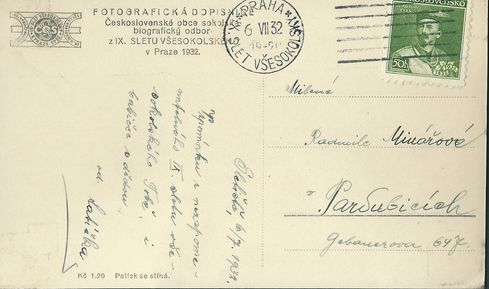 FOTOGRAFICKÁ DOPISNICE
Československé obce sokolské
biografický odbor
z IX. SLETU VŠESOKOLSKÉHO
v Praze 1932.
PRAHA
6 VII 32
SLET VŠESOKOLSKÝ
50h
Milené
Radmile Minářové
Pardubicích
Gebauerova 647.
6/7 1932.
Vzpomínku z nezapome-
nutelného IX. sletu vše-
sokolského
i
babičce a dědovi
od
Kč 1.20 Patisk se stíhá.